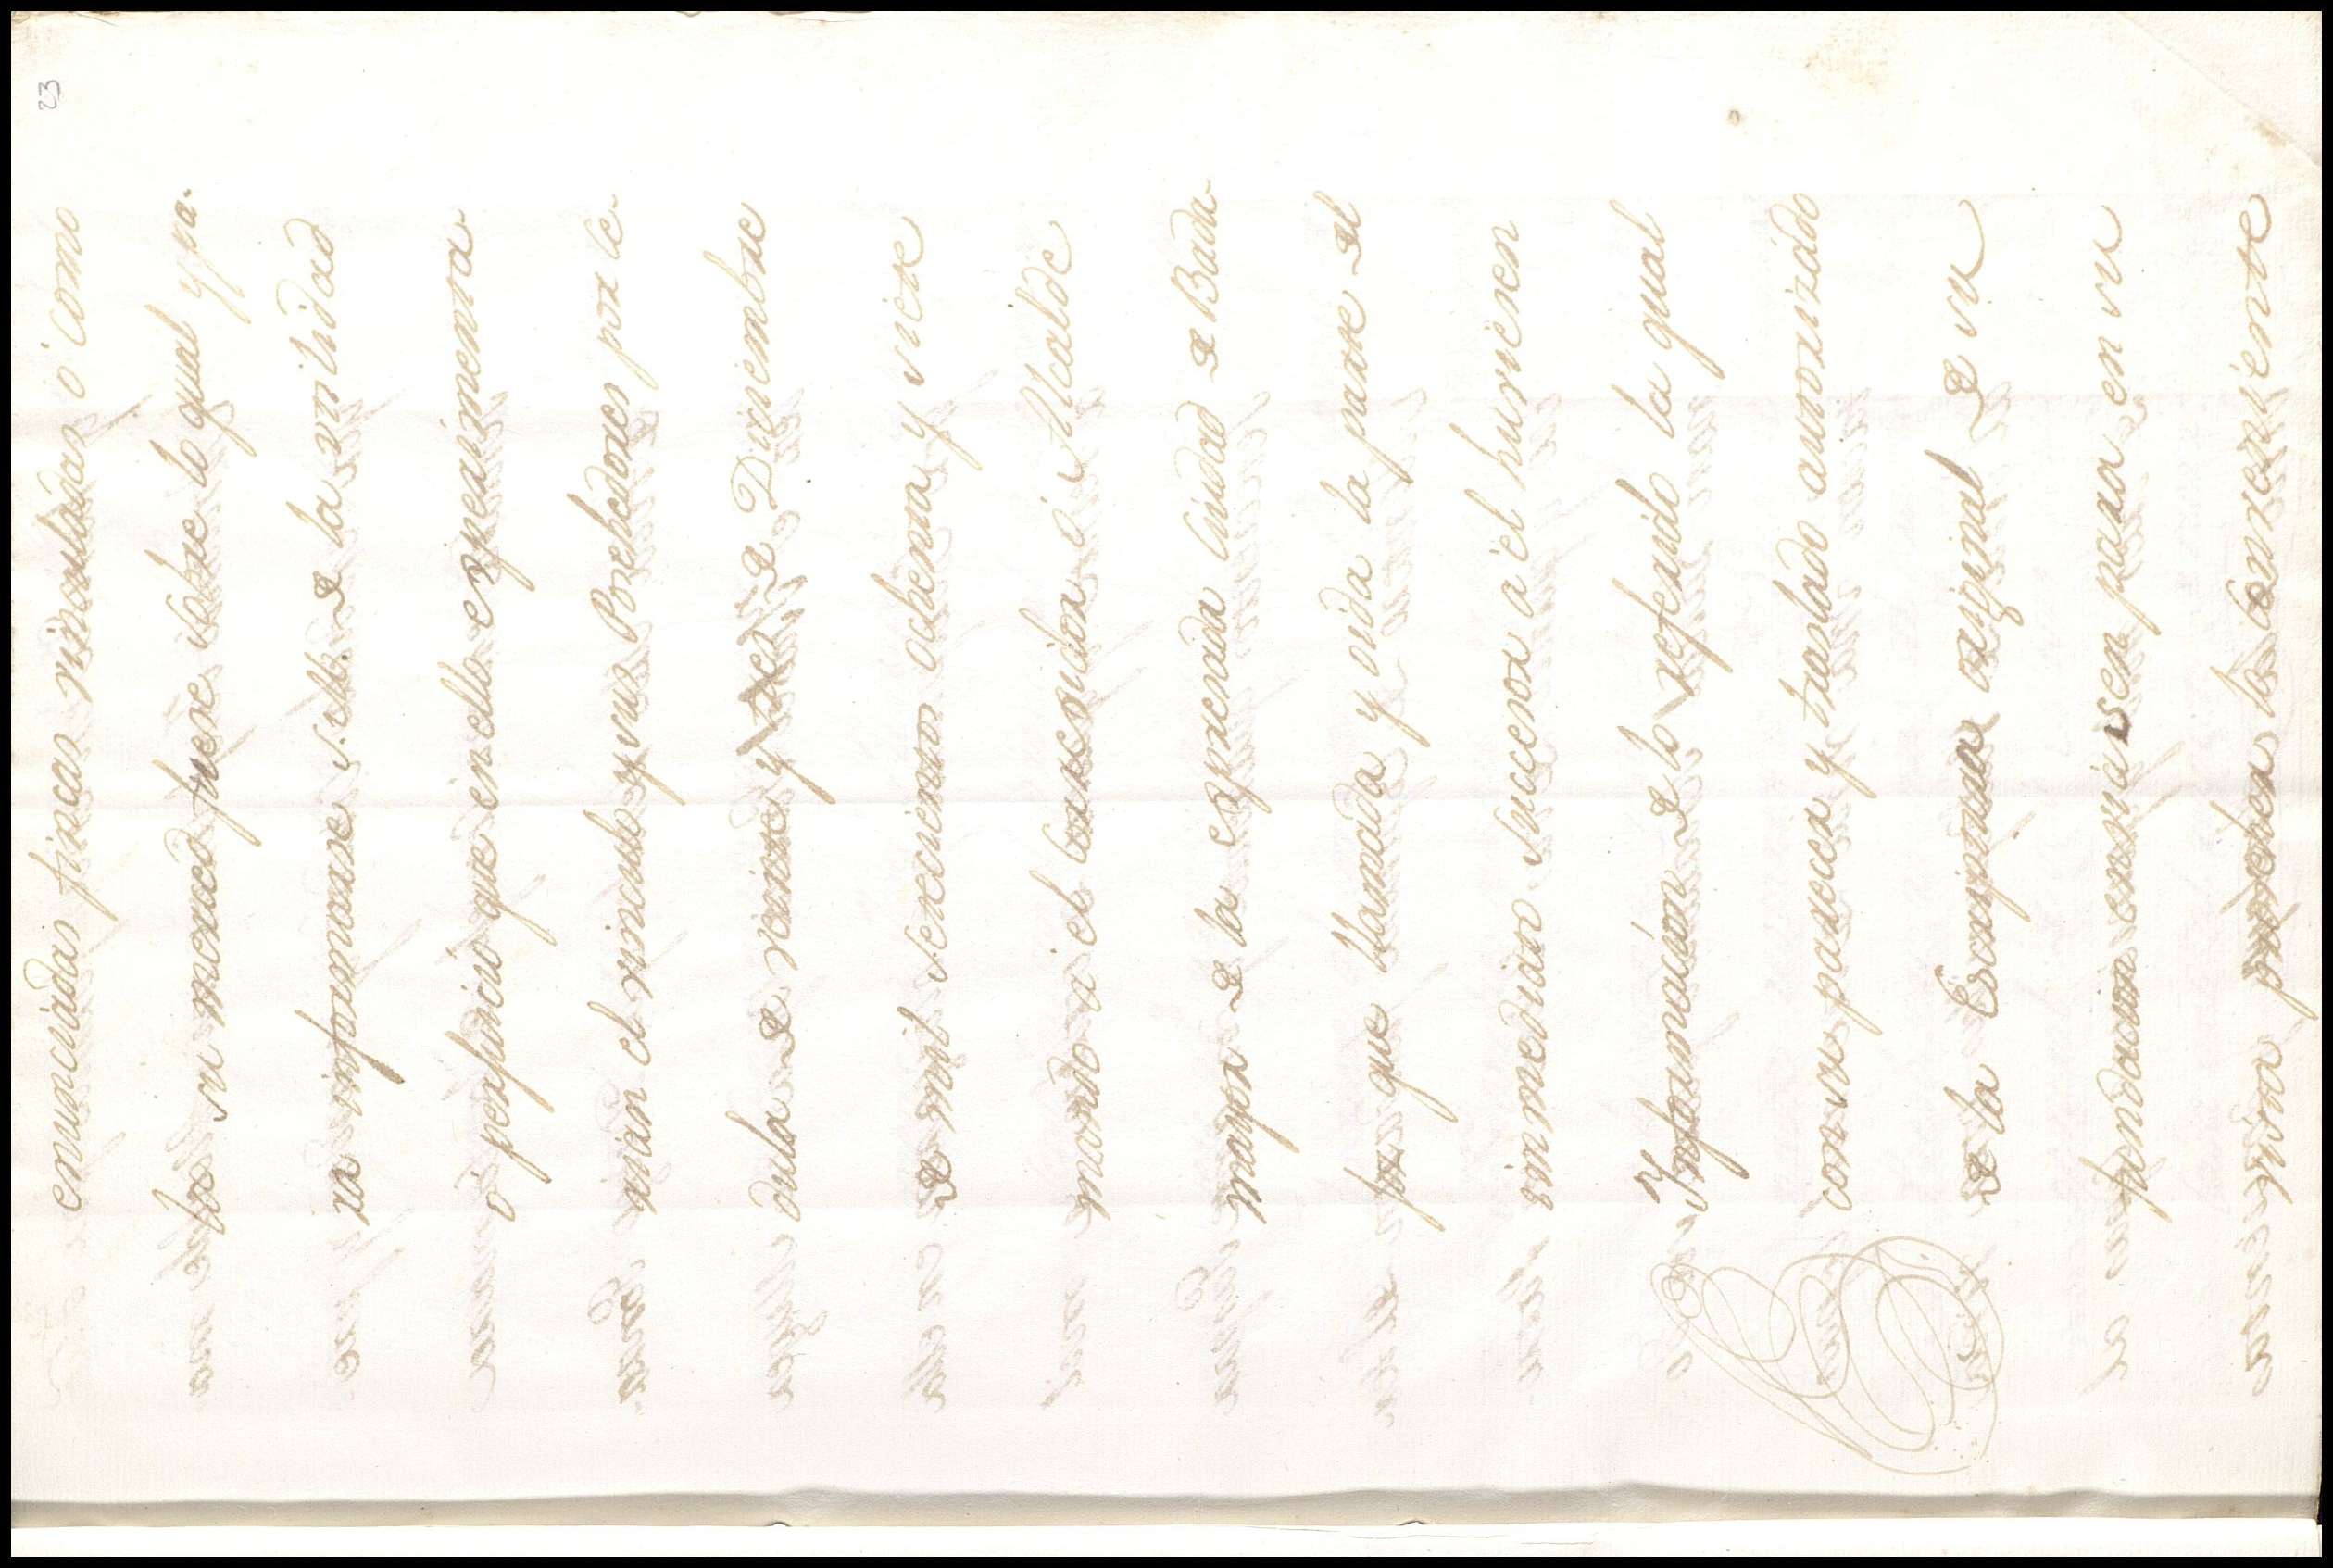 23
enunciadas fincas vinculadas ó como
fol su mexced fuese sobre lo qual y pa-
ra informarse S. M. de la vtilidad
ó perjuicio que en ello experimenta
rian el vinculo y sus Posehedores por Ce-
dula de veinte y tres de Diciembre
de mil setecientos ochenta y siete
mando á el Correxidor ó Alcalde
mayor de la expresada Ciudad de Bada-
joz que llamada y oida la parte del
inmediato Succesor á él huviesen
Informacion de lo referido la qual
con su parecer y traslado autorizado
de la Escriptura original de su
fundacion enviasen para en su
vista proveher lo conveniente